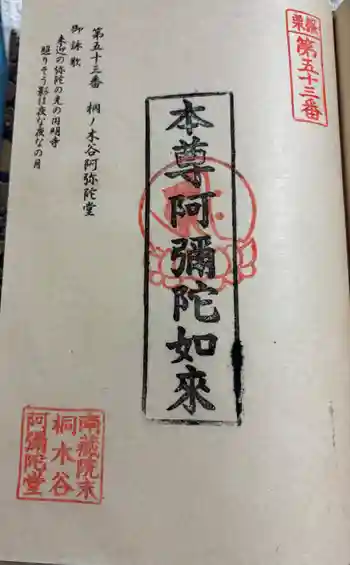 第五十三番
本尊阿彌陀如來
第五十三番 桐ノ木谷阿弥陀堂
御詠歌
来迎の弥陀の光の円明寺
照りそう影は夜な夜なの月
南蔵院末
桐木谷
阿彌陀堂